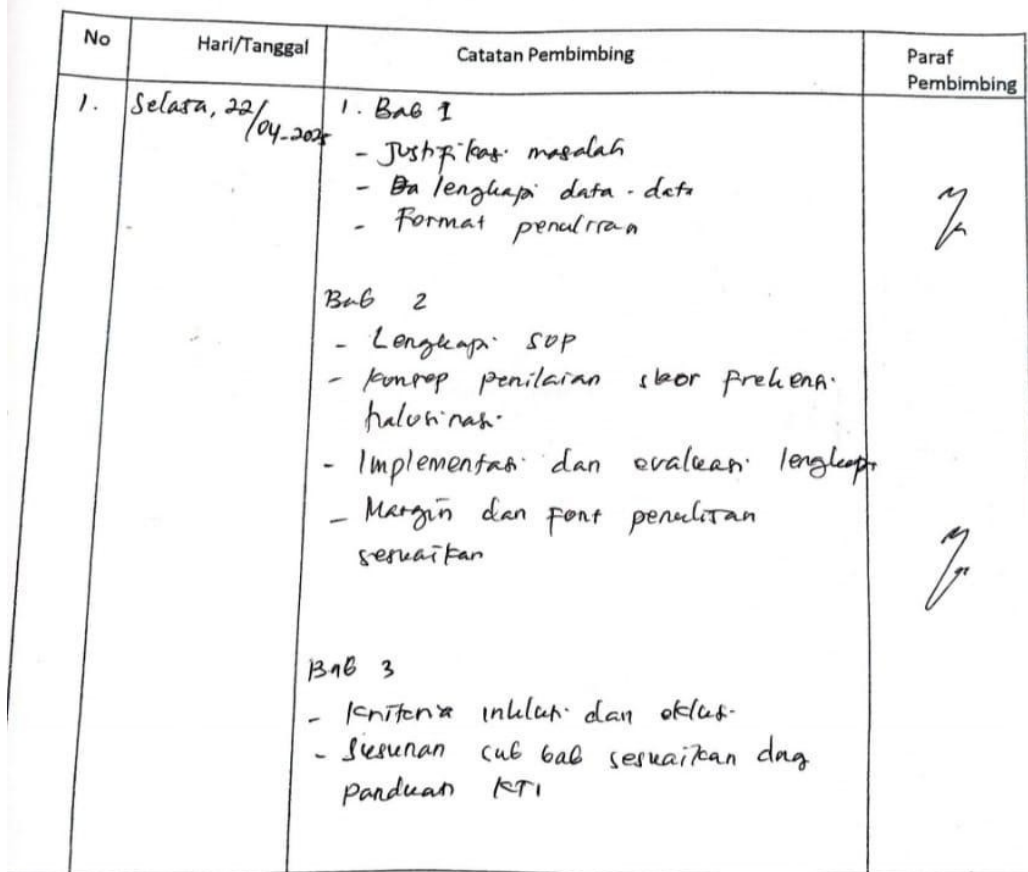 No Hari/Tanggal Catatan Pembimbing Paraf
Pembimbing
1. Selasa, 22/04-2025 1. Bab 1
- Justifikasi masalah
- lengkapi data-data
- Format penulisan
Bab 2
- Lengkapi SOP
- Konsep penilaian skor frekensi
halusinasi
- Implementasi dan evaluasi lengkapi
- Margin dan Font penulisan
sesuaikan
Bab 3
- Kriteria inklusi dan eklusi
- Susunan sub bab sesuaikan dng
panduan KTI